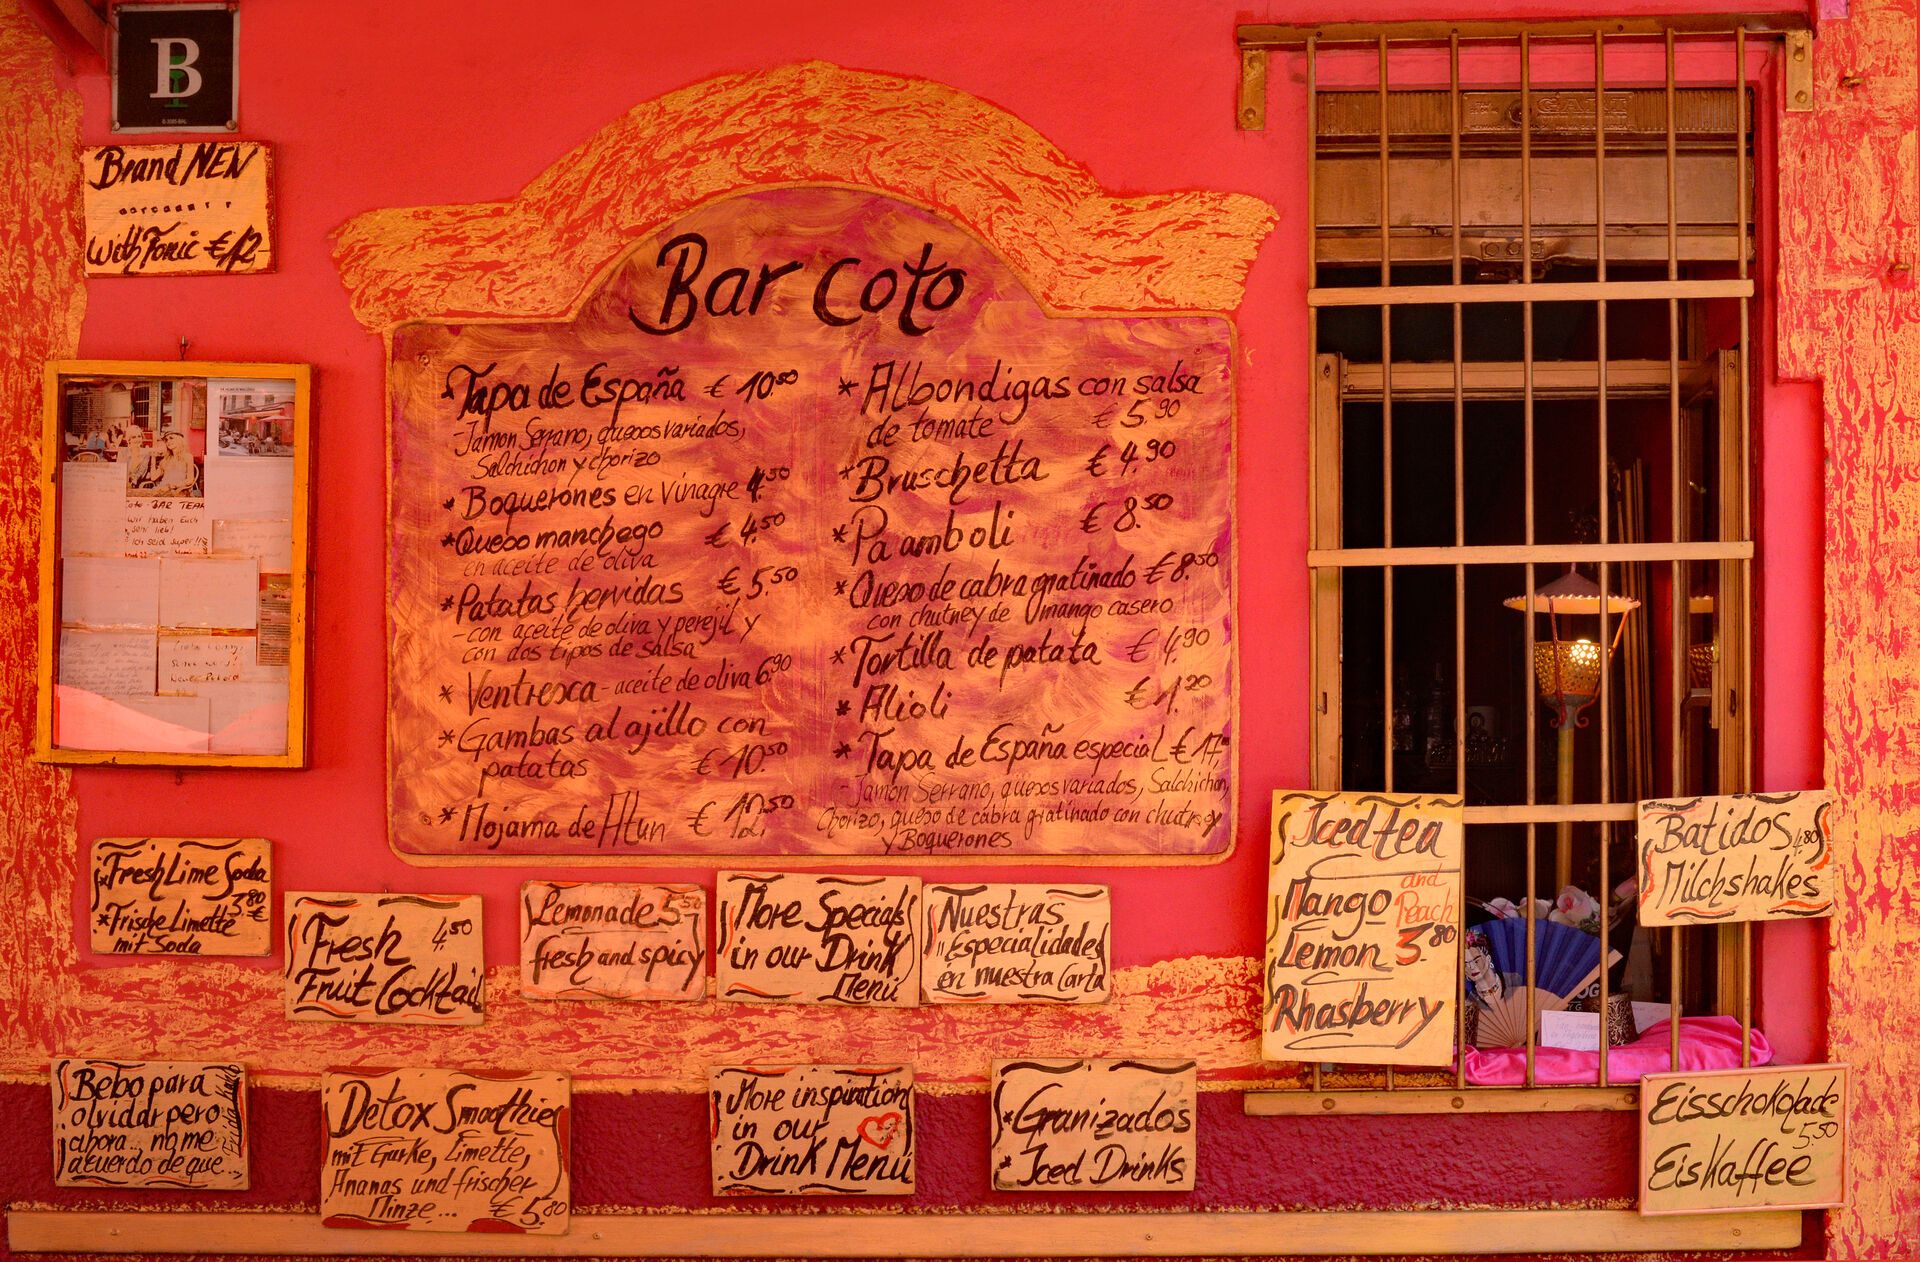 B
Brand NEW
With Tonic €12-
Bar Coto
*Tapa de España € 10.50
-Jamon Serrano, quesos variados,
Salchichon y chorizo
* Boquerones en vinagre 4.50
*Queso manchego € 4.50
en aceite de oliva
*Patatas hervidas € 5.50
-con aceite de oliva y perejil y
con dos tipos de salsa
* Ventresca - aceite de oliva 6.90
*Gambas al ajillo con
patatas € 10.50
* Mojama de Atun € 12.50
* Albondigas con salsa
de tomate € 5.90
*Bruschetta € 4.90
*Pa amb oli € 8.50
*Queso de cabra gratinado € 8.50
con chutney de mango casero
*Tortilla de patata € 4.90
* Alioli € 1.20
*Tapa de España especial € 17,
-Jamon Serrano, quesos variados, Salchichon,
Chorizo, queso de cabra gratinado con chutney
y Boquerones
*Fresh Lime Soda
3.80 €
*Frische Limette
mit Soda
Fresh 4.50
Fruit Cocktail
Lemonade 5.50
fresh and spicy
More Specials
in our Drink
Menú
Nuestras
"Especialidades
en nuestra Carta
Iced Tea
Mango and Peach
Lemon 3.80
Rhasberry
Batidos 4.80
Milchshakes
Bebo para
olvidar pero
ahora... no me
acuerdo de que...
Frida Kahlo
Detox Smoothie
mit Gurke, Limette,
Ananas und frischer
Minze... € 5.80
More inspiration
in our
Drink Menú
*Granizados
*Iced Drinks
Eisschokolade
5.50
Eiskaffee